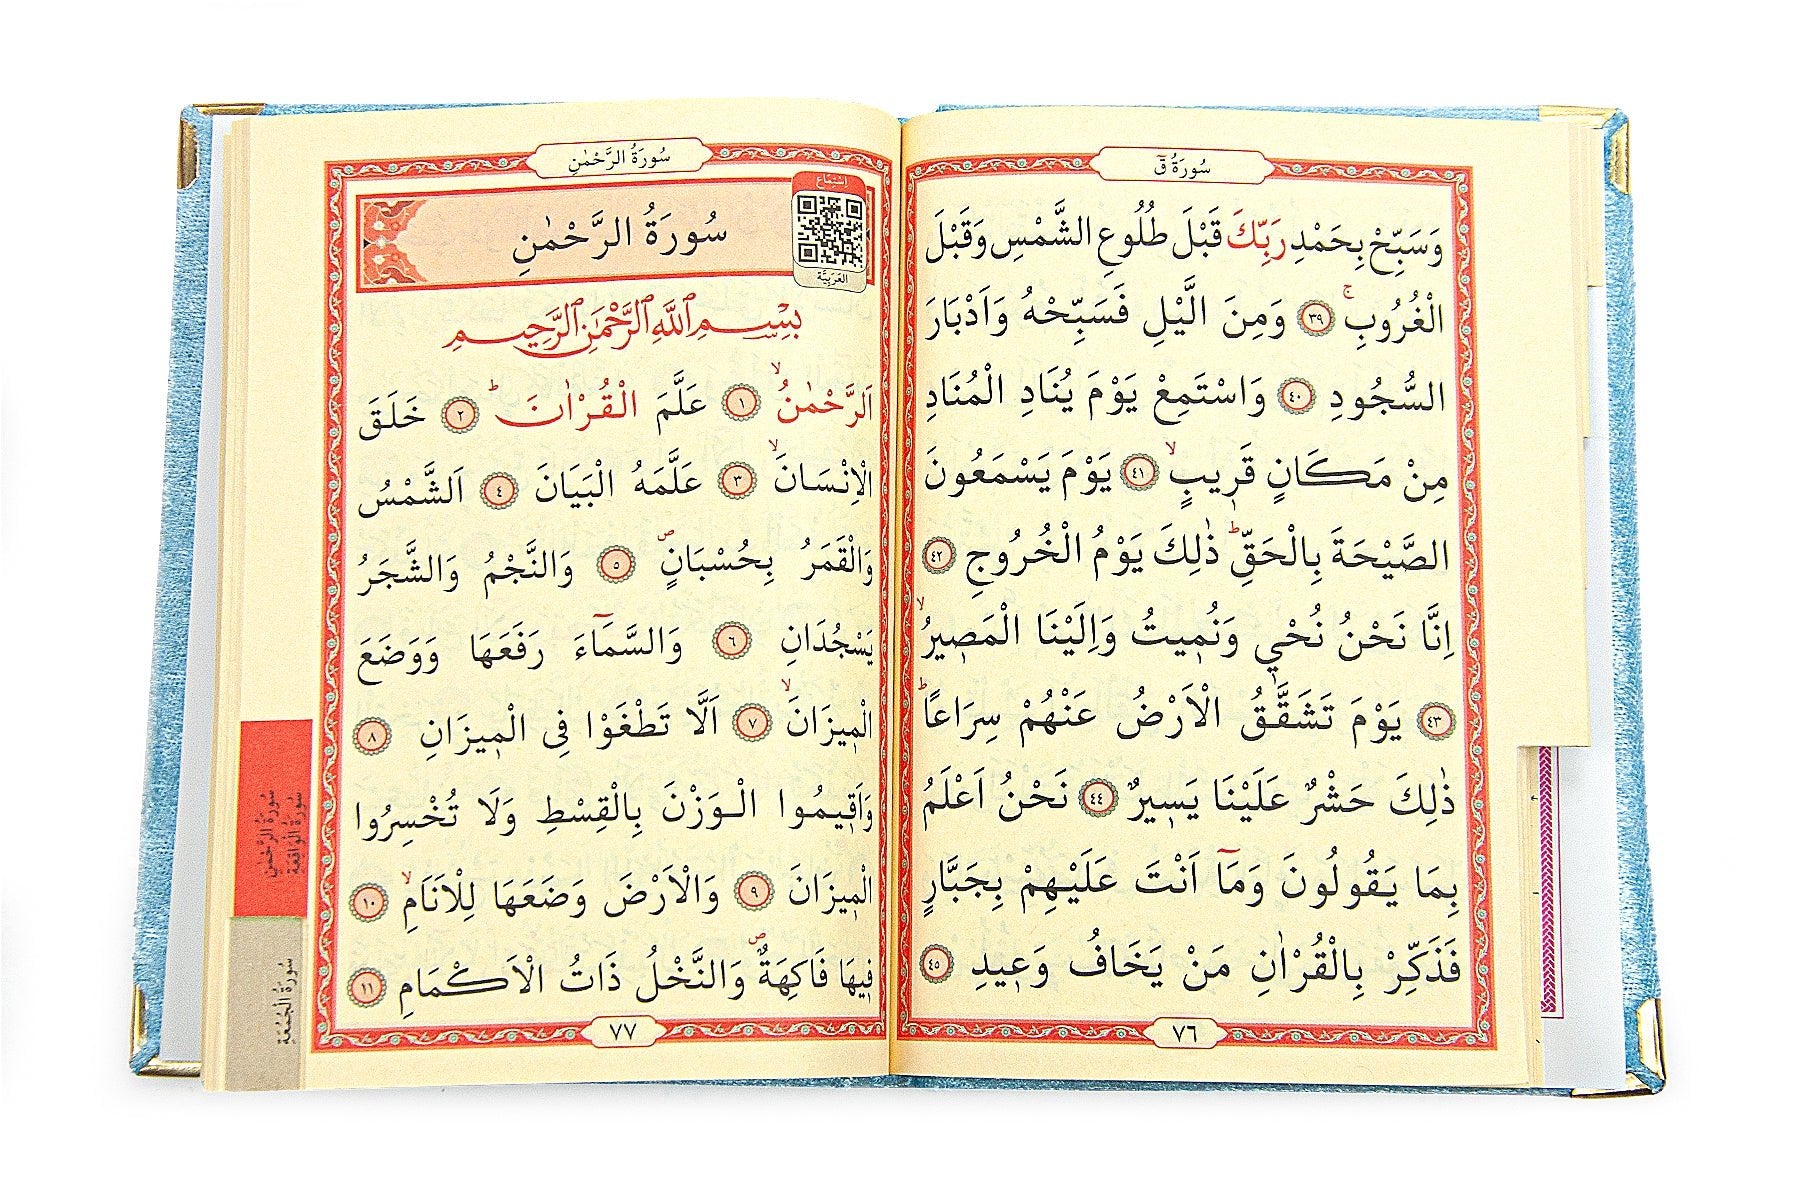 سُورَةُ قٓ
وَسَبِّحْ بِحَمْدِ رَبِّكَ قَبْلَ طُلُوعِ الشَّمْسِ وَقَبْلَ
الْغُرُوبِۚ ﴿٣٩﴾ وَمِنَ الَّيْلِ فَسَبِّحْهُ وَاَدْبَارَ
السُّجُودِ ﴿٤٠﴾ وَاسْتَمِعْ يَوْمَ يُنَادِ الْمُنَادِ
مِنْ مَكَانٍ قَر۪يبٍۙ ﴿٤١﴾ يَوْمَ يَسْمَعُونَ
الصَّيْحَةَ بِالْحَقِّۜ ذٰلِكَ يَوْمُ الْخُرُوجِ ﴿٤٢﴾
اِنَّا نَحْنُ نُحْي۪ وَنُم۪يتُ وَاِلَيْنَا الْمَص۪يرُۙ
﴿٤٣﴾ يَوْمَ تَشَقَّقُ الْاَرْضُ عَنْهُمْ سِرَاعًاۜ
ذٰلِكَ حَشْرٌ عَلَيْنَا يَس۪يرٌ ﴿٤٤﴾ نَحْنُ اَعْلَمُ
بِمَا يَقُولُونَ وَمَٓا اَنْتَ عَلَيْهِمْ بِجَبَّارٍ
فَذَكِّرْ بِالْقُرْاٰنِ مَنْ يَخَافُ وَع۪يدِ ﴿٤٥﴾
٧٦
سُورَةُ الرَّحْمٰنِ
اِسْتِمَاع
سُورَةُ الرَّحْمٰنِ
العَرَبِيَّة
بِسْمِ اللّٰهِ الرَّحْمٰنِ الرَّحِيمِ
اَلرَّحْمٰنُۙ ﴿١﴾ عَلَّمَ الْقُرْاٰنَۜ ﴿٢﴾ خَلَقَ
الْاِنْسَانَۙ ﴿٣﴾ عَلَّمَهُ الْبَيَانَ ﴿٤﴾ اَلشَّمْسُ
وَالْقَمَرُ بِحُسْبَانٍۖ ﴿٥﴾ وَالنَّجْمُ وَالشَّجَرُ
يَسْجُدَانِ ﴿٦﴾ وَالسَّمَٓاءَ رَفَعَهَا وَوَضَعَ
الْم۪يزَانَۙ ﴿٧﴾ اَلَّا تَطْغَوْا فِي الْم۪يزَانِ ﴿٨﴾
وَاَق۪يمُوا الْوَزْنَ بِالْقِسْطِ وَلَا تُخْسِرُوا
الْم۪يزَانَ ﴿٩﴾ وَالْاَرْضَ وَضَعَهَا لِلْاَنَامِۙ ﴿١٠﴾
ف۪يهَا فَاكِهَةٌۖ وَالنَّخْلُ ذَاتُ الْاَكْمَامِ ﴿١١﴾
٧٧
سُورَةُ الرَّحْمٰنِ
سُورَةُ الْوَاقِعَةِ
سُورَةُ الْجُمُعَةِ